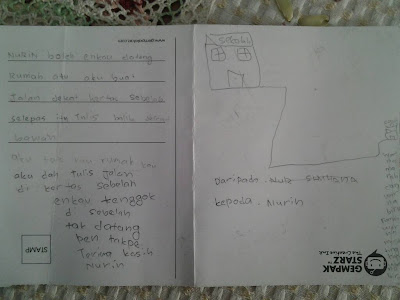 www.gempakstarz.com
NURIN boleh enkau datang
rumah aku aku buat
jalan dekat kertas sebelah
selepas itu tulis balik dekat
bawah
aku tak tau rumah kau
aku dah tulis jalan
di kertas sebelah
enkau tenggok
di sebelah
tak datang
pen takpe
Terima kasih
Nurin
STAMP
sekolah
Daripada
kepada. Nurin
GEMPAK
STARZ